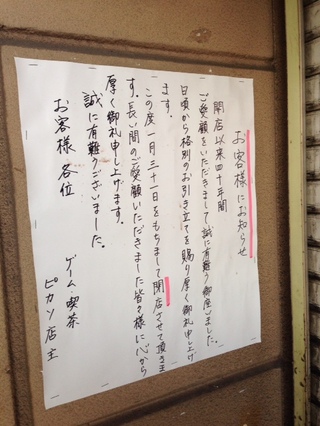 お客様にお知らせ
開店以来四十年間
ご愛顧をいただきまして誠に有難う御座いました。
日頃から格別のお引き立てを賜り厚く御礼申し上げ
ます。
この度一月三十一日をもちまして閉店させて頂きま
す。長い間のご愛顧いただきました皆々様に心から
厚く御礼申し上げます。
誠に有難うございました。
お客様各位
ゲーム・喫茶
ピカソ店主